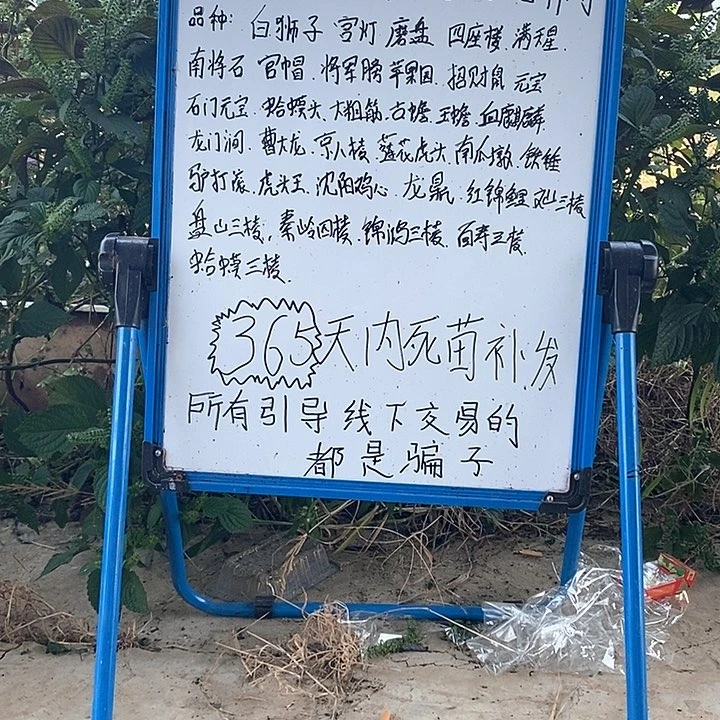 品种: 白狮子 宫灯 磨盘 四座楼 满天星.
南将石 官帽. 将军膀 苹果园. 招财鼠 元宝
石门元宝. 蛤蟆头. 大粗筋. 古蟾. 王蟾. 血麒麟.
龙门涧. 曹大龙. 京八棱. 莲花虎头. 南瓜墩. 铁锤
驴打滚. 虎头王. 沈阳鸡心. 龙鼎. 红锦鲤 三棱
盘山三棱, 秦岭四棱. 锦鸿三棱. 百寿三棱.
蛤蟆三棱.
365天内死苗补发
所有引导线下交易的
都是骗子